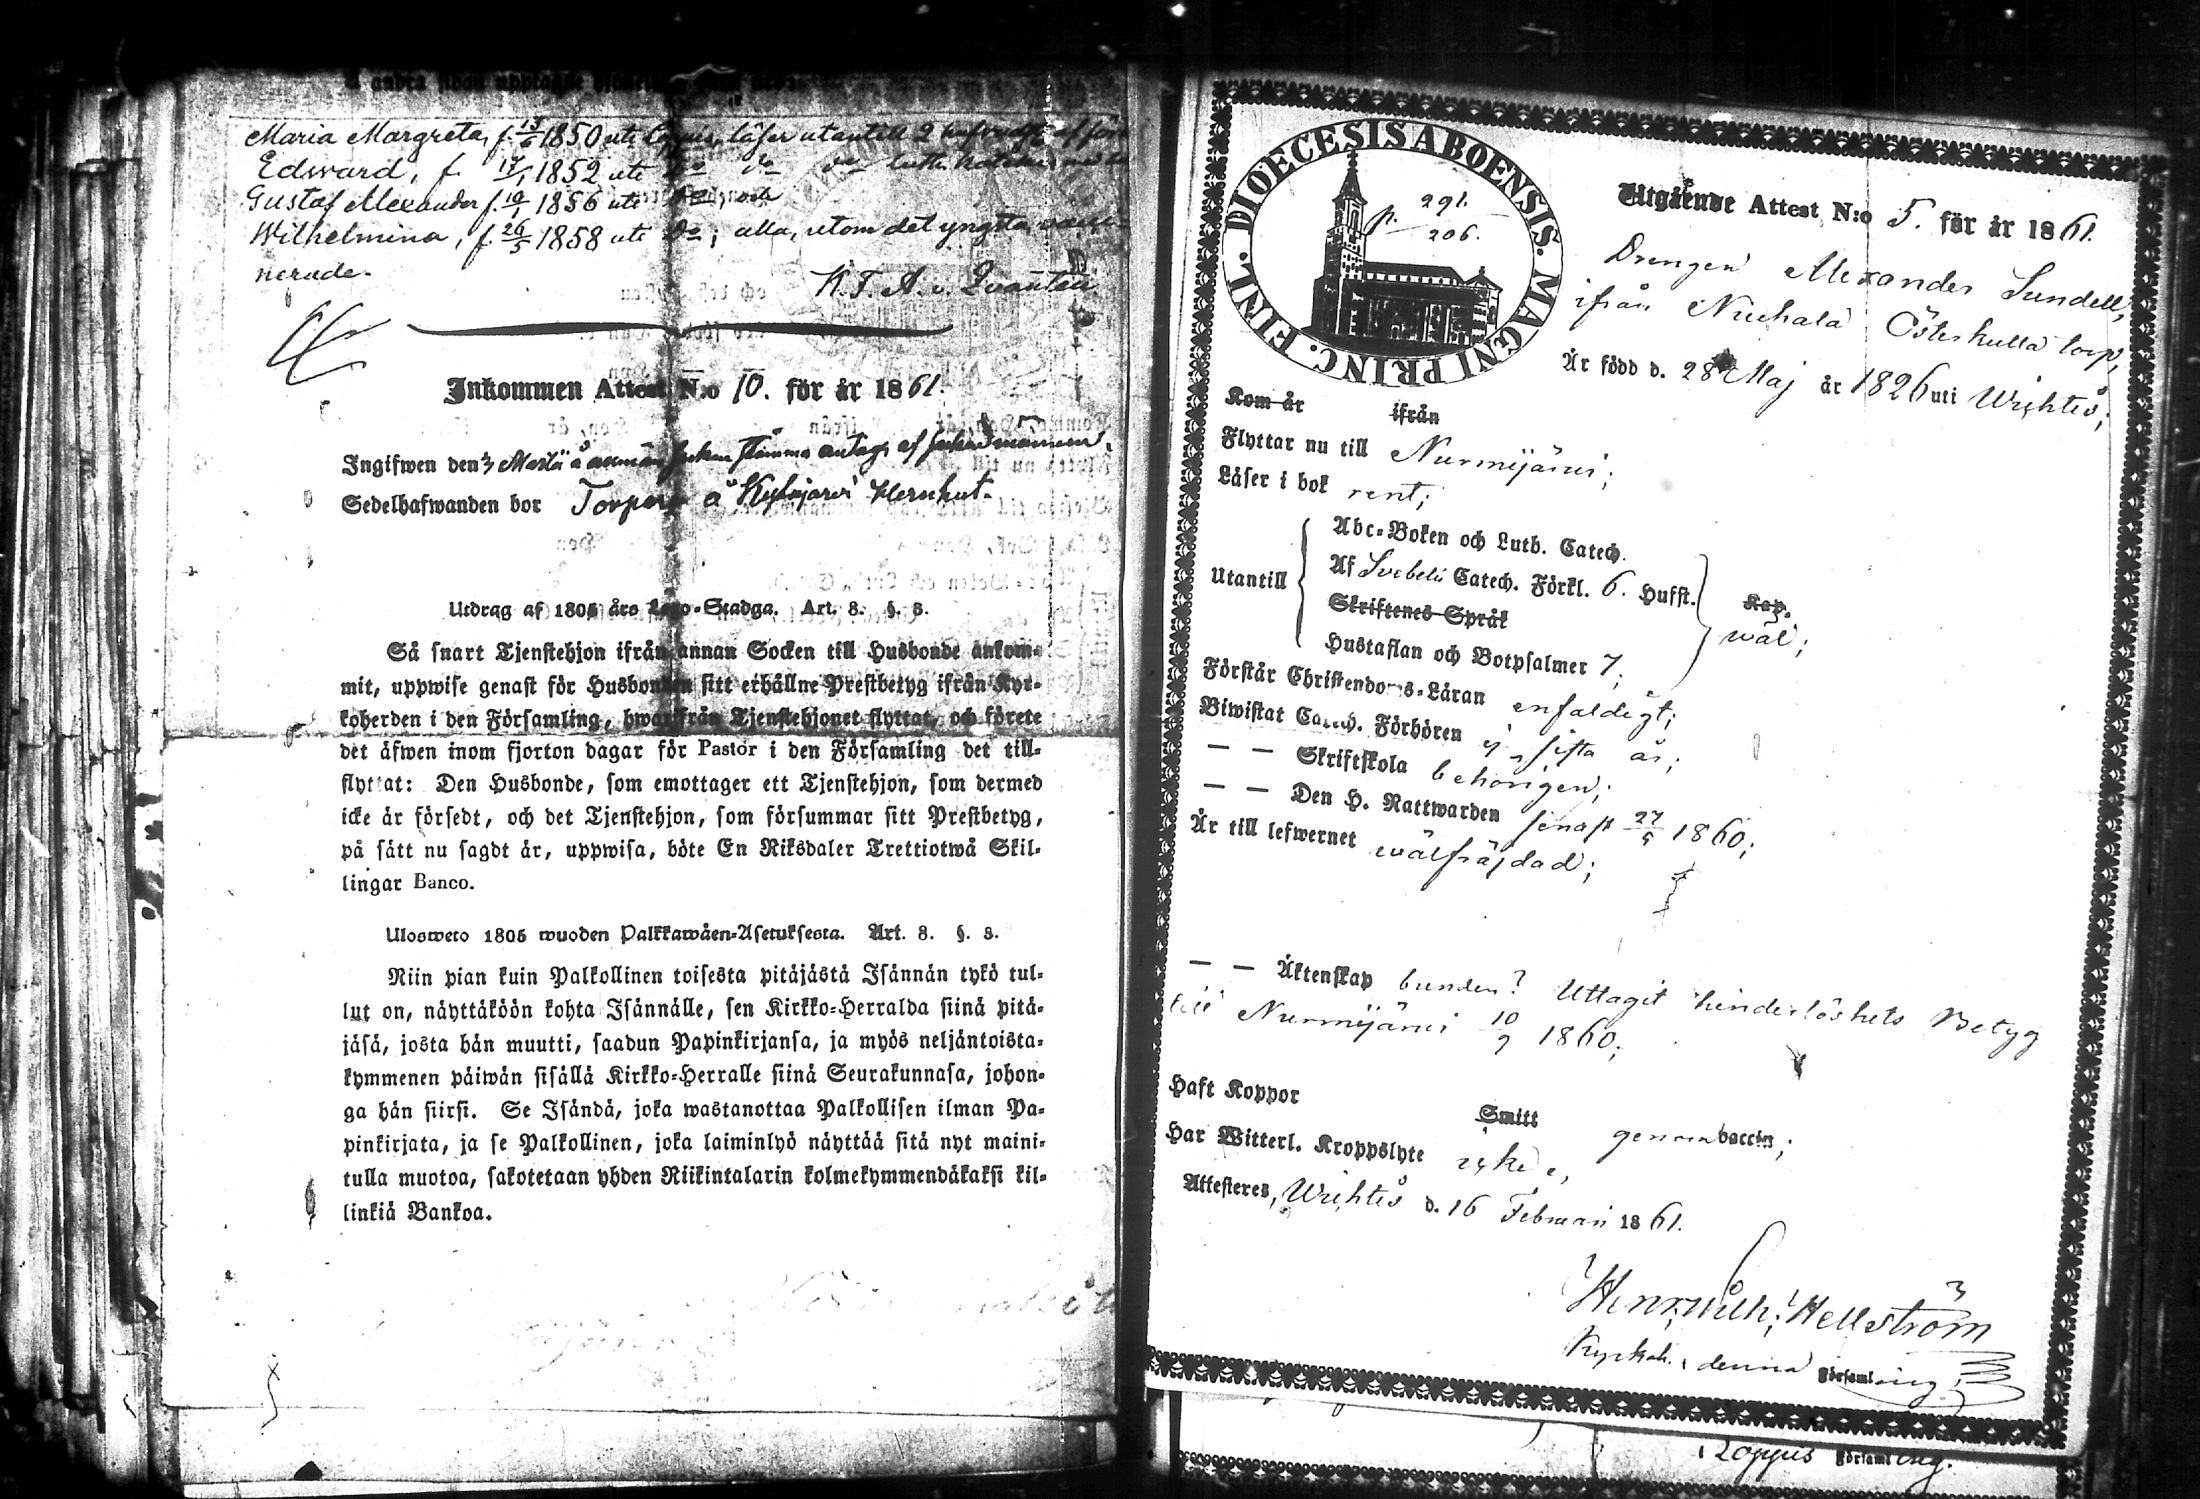 Maria Margreta, f. 13/6 1850 uti Loppis, läser utantill 2
Edward, f. 17/1 1852 uti Do Do Do
Gustaf Alexander f. 10/1 1856 uti
Wilhelmina, f. 26/5 1858 uti Do; alla, utom det yngsta, vacci-
nerade.
K. T. A. v. Qvanten
Inkommen Attest N:o 10. för år 1861.
Ingifwen den
Sedelhafwanden bor Torpare å Kytäjärvi
Utdrag af 1805 års Lego-Stadga. Art. 8. §. 8.
Så snart Tjenstehjon ifrån annan Socken till Husbonde ankom-
mit, uppwise genast för Husbonden sitt erhållne Prestbetyg ifrån Kyr-
koherden i den Församling, hwarifrån Tjenstehjonet flyttat, och förete
det äfwen inom fjorton dagar för Pastor i den Församling det till-
flyttat: Den Husbonde, som emottager ett Tjenstehjon, som dermed
icke är försedt, och det Tjenstehjon, som försummar sitt Prestbetyg,
på sätt nu sagdt är, uppwisa, böte En Riksdaler Trettiotwå Skil-
lingar Banco.
Ulosweto 1805 wuoden Palkkawäen-Asetuksesta. Art. 8. §. 8.
Niin pian kuin Palkollinen toisesta pitäjästä Isännän tykö tul-
lut on, näyttäköön kohta Isännälle, sen Kirkko-Herralda siinä pitä-
jäsä, josta hän muutti, saadun Papinkirjansa, ja myös neljäntoista-
kymmenen päiwän sisällä Kirkko-Herralle siinä Seurakunnasa, johon-
ga hän siirsi. Se Isändä, joka wastanottaa Palkollisen ilman Pa-
pinkirjata, ja se Palkollinen, joka laiminlyö näyttää sitä nyt maini-
tulla muotoa, sakotetaan yhden Riikintalarin kolmekymmendäkaksi kil-
linkiä Bankoa.
DIOECESIS ABOENSIS. MAGNI PRINC. FINL.
p. 291.
206.
Utgående Attest N:o 5. för år 1861.
Drengen Alexander Sundell,
ifrån Nuchala Österkulla torp,
Är född d. 28 Maj år 1826 uti Wichtis;
Kom år ifrån
Flyttar nu till Nurmijärvi;
Läser i bok rent;
Utantill
Abc-Boken och Luth. Catech.
Af Svebelii Catech. Förkl. 6. Hufst.
Skriftenes Språk
Hustaflan och Botpsalmer 7;
Kap.
wäl;
Förstår Christendoms-Läran enfaldigt;
Biwistat Catech. Förhören ej sista år;
— — Skriftskola behörigen;
— — Den H. Nattwarden senast 27/5 1860;
Är till lefwernet wälfräjdad;
— — Äktenskap bunden? Uttagit hinderlöshets Betyg
till Nurmijärvi 10/9 1860;
Haft Koppor
Smitt genom vaccin;
Har Witterl. Kroppslyte icke;
Attesteres, Wichtis d. 16 Februari 1861.
Henr. Wilh. Hellström
Kyrkoh. i denna Församling.
i Loppis Församling.